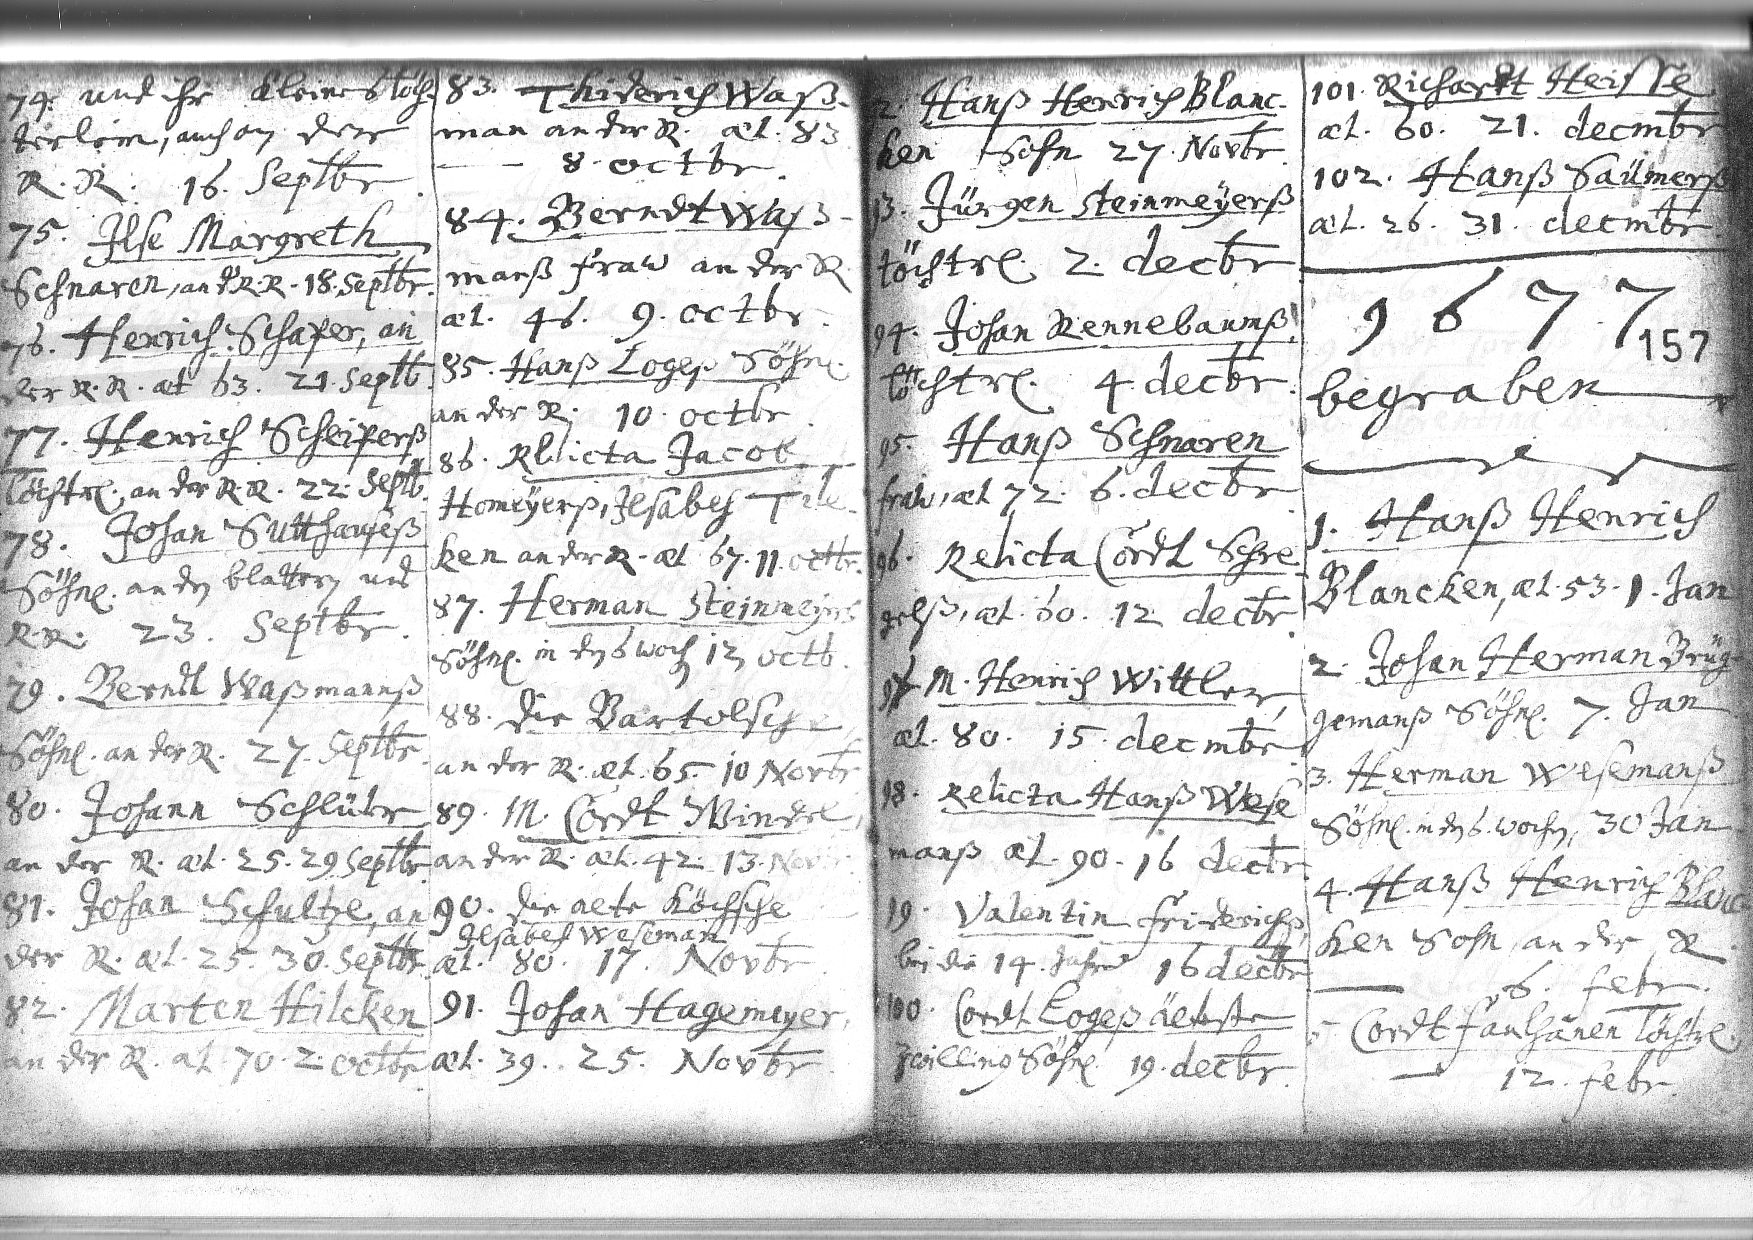 74. und ihr kleines töch-
terlein, auch an der
R. R. 16. Septbr.
75. Ilse Margreth
Schnaren, an d R.R. 18. Septbr.
76. Henrich Schafer, an
der R. R. æt 63. 21. Septb.
77. Henrich Scheiferß
töchtrl. an der R.R. 22. Septb.
78. Johan
Söhnl. an den blattern und
R.R. 23. Septbr.
79. Berndt Waßmannß
Söhnl. an der R. 27. Septbr.
80. Johann Schlüter
an der R. æt. 25. 29 Septbr.
81. Johan Schultze, an
der R. æt. 25. 30. Septbr.
82. Marten Hilcken
an der R. æt 70. 2. octbr.
83. Thiderich Waß-
man an der R. æt. 83
8. octbr.
84. Berndt Waß-
manß fraw an der R.
æt. 46. 9. octbr.
85. Hanß Logeß Söhnl.
an der R. 10. octbr.
86. Relicta Jacob
Homeÿerß, Ilsabeh Tile-
ken an der R. æt 67. 11. octbr.
87. Herman Steinmeyers
Söhnl. in den 6 woch 12 octb.
88. die Bartolsche
an der R. æt. 65. 10 Novbr
89. M. Cordt Windel,
an der R. æt. 42. 13. Novbr.
90. die alte Köchsche
Ilsabeh Weseman
æt. 80. 17. Novbr
91. Johan Hagemeyer,
æt. 39. 25. Novbr
2. Hanß Henrich Blanc-
ken Sohn 27. Novbr.
93. Jürgen Steinmeÿerß
töchtrl. 2. decbr
94. Johan Rennebaumß
töchtrl. 4. decbr.
95. Hanß Schnaren
fraw, æt 72. 6. decbr
96. Relicta Cordt Schre-
gelß, æt. 60. 12 decbr.
97 M. Henrich Wittler,
æt. 80. 15. decmbr
98. Relicta Hanß Wese
manß æt. 90. 16 decbr.
99. Valentin Friderichß,
bei die 14. Jahr 16 decbr
100. Cordt Logeß älteste
Zwilling Söhnl. 19. decbr.
101. Richardt Heisse
æt. 60. 21. decmbr
102. Hanß Saümerß
æt. 26. 31. decmbr
1677
157
begraben
1. Hanß Henrich
Blancken, æt. 53. 1. Jan
2. Johan Herman Brüg-
gemanß Söhnl. 7. Jan
3. Herman Wesemanß
Söhnl. in den 6. wochen, 30 Jan
4. Hanß Henrich Blanc-
ken Sohn, an der R.
6. febr.
5 Cordt Faulhänen töchtrl.
12. febr.